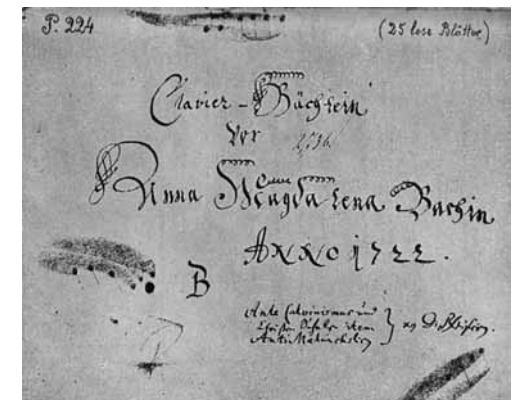 P. 224
(25 lose Blätter)
Clavier-Büchlein
vor
Anna Magdalena Bachin
ANNO 1722.
B
Ante Calvinismus und
Christen Schule item
Anti Melancholicus